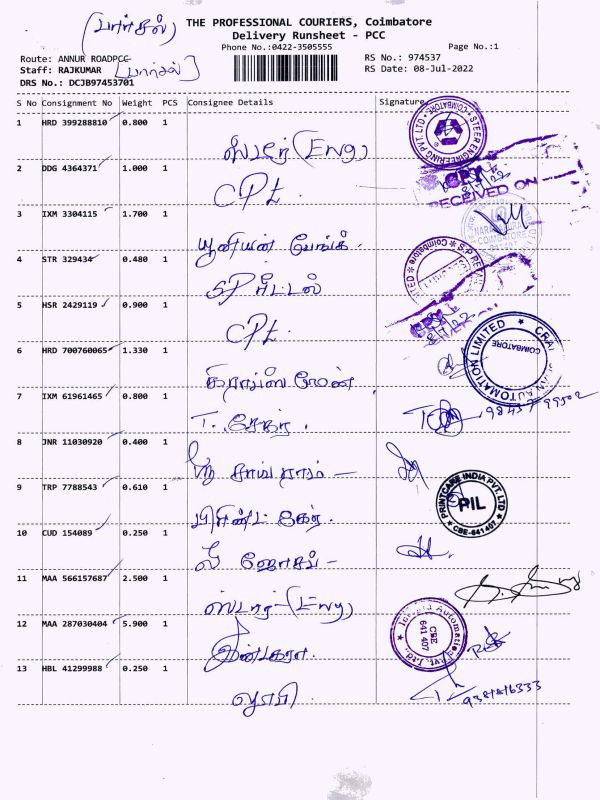 (பார்சல்)
THE PROFESSIONAL COURIERS, Coimbatore
Delivery Runsheet - PCC
Phone No.:0422-3505555
Page No.:1
Route: ANNUR ROADPCC
Staff: RAJKUMAR (பார்சல்)
DRS No.: DCJB97453701
RS No.: 974537
RS Date: 08-Jul-2022
S No Consignment No Weight PCS Consignee Details Signature
1 HRD 399288810 0.800 1
ஸ்டீர் (Eng)
STEER ENGINEERING PVT. LTD. COIMBATORE
2 DDG 4364371 1.000 1
CPL
RECEIVED ON
3 IXM 3304115 1.700 1
யூனியன் பேங்க்
COIMBATORE
4 STR 329434 0.480 1
SP மீட்டல்
Coimbatore
5 HSR 2429119 0.900 1
CPL
6 HRD 700760065 1.330 1
கிராப்ட்ஸ்மேன்
AUTOMATION LIMITED
COIMBATORE
7 IXM 61961465 0.800 1
T. சேகர்
8 JNR 11030920 0.400 1
ஸ்ரீ சாய்ராம்
9 TRP 7788543 0.610 1
பிரிண்ட் கேர்
PRINTCARE INDIA PVT. LTD
PIL
CBE-641407
10 CUD 154089 0.250 1
ஜோசப்
11 MAA 566157687 2.500 1
ஸ்டார் (Eng)
12 MAA 287030404 5.900 1
Automation Pvt. Ltd.
CBE
641 407
13 HBL 41299988 0.250 1